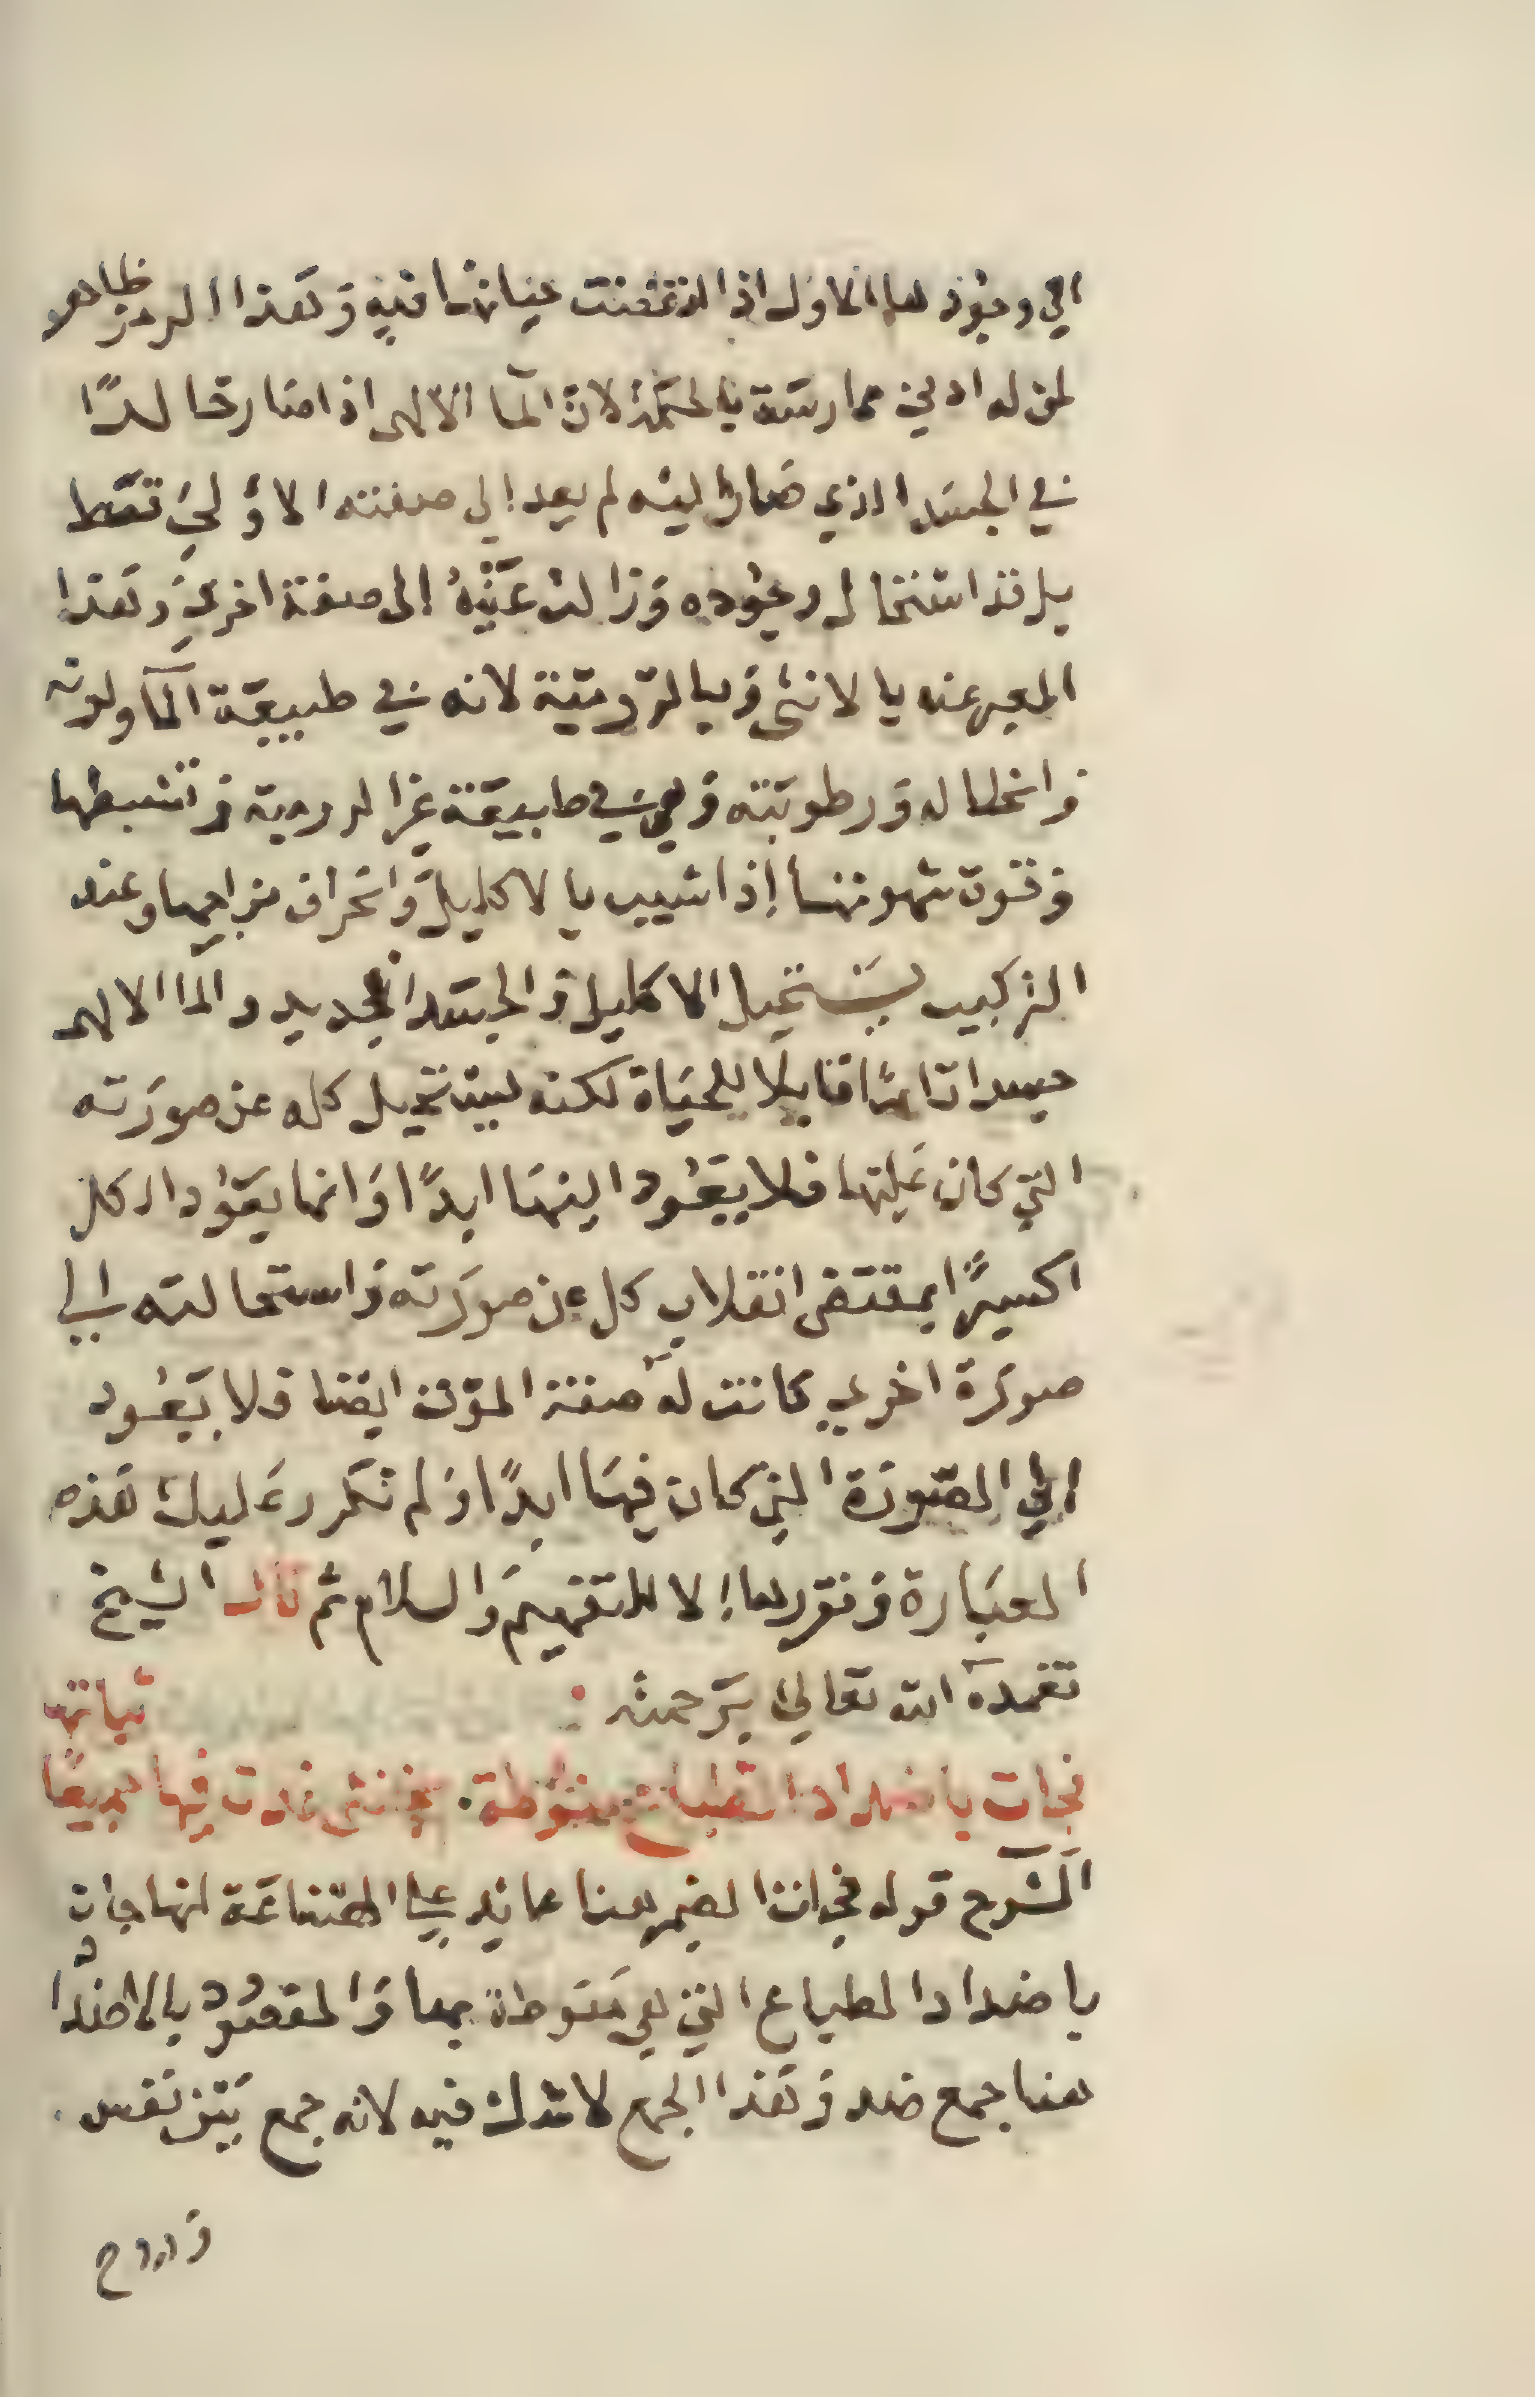 الي وجودها الاول اذا اندفعت عنها فيه وهذا الرمز ظاهر
لمن له ادني ممارسة بالحكمة لان الما الالهي اذا صار خالدًا
في الجسد الذي صار اليه لم يعد الى صفته الاولى فقط
بل قد استحال وجوده وزالت عنه الى صفة اخري وهذا
المعبر عنه بالانثى وبالرومية لانه في طبيعة الما ولونه
وانحلاله ورطوبته وهي في طبيعة غير الرومية وتشبطها
وقوة شهوتها إذا شيب بالاكليل وانحراف مزاجها وعند
التركيب يستحيل الاكليل والجسد الجديد والما الالهي
جسدا تامًا قابلا للحياة لكنه يستحيل كله عن صورته
التي كان عليها فلا يعود اليها ابدًا وانما يعود الكل
اكسيرًا بمقتضى انقلاب كل عن صورته واستحالته الى
صورة اخري كانت له صفة الموت ايضا فلا يعود
الي الصورة التي كان فيها ابدًا ولم نكرر عليك هذه
العبارة ونقررها إلا للتفهيم والسلام ثم قال الشيخ
تغمده الله تعالى برحمته :
فجات باضداد الطباع منوطة · فيها جميعًا
الشرح قوله فجات الضمير هنا عايد علي الصناعة انها جات
باضداد الطباع التي هي منوطة بها والمقصود بالاضداد
هنا جمع ضد وهذا الجمع لا شك فيه لانه جمع بين نفس
وروح